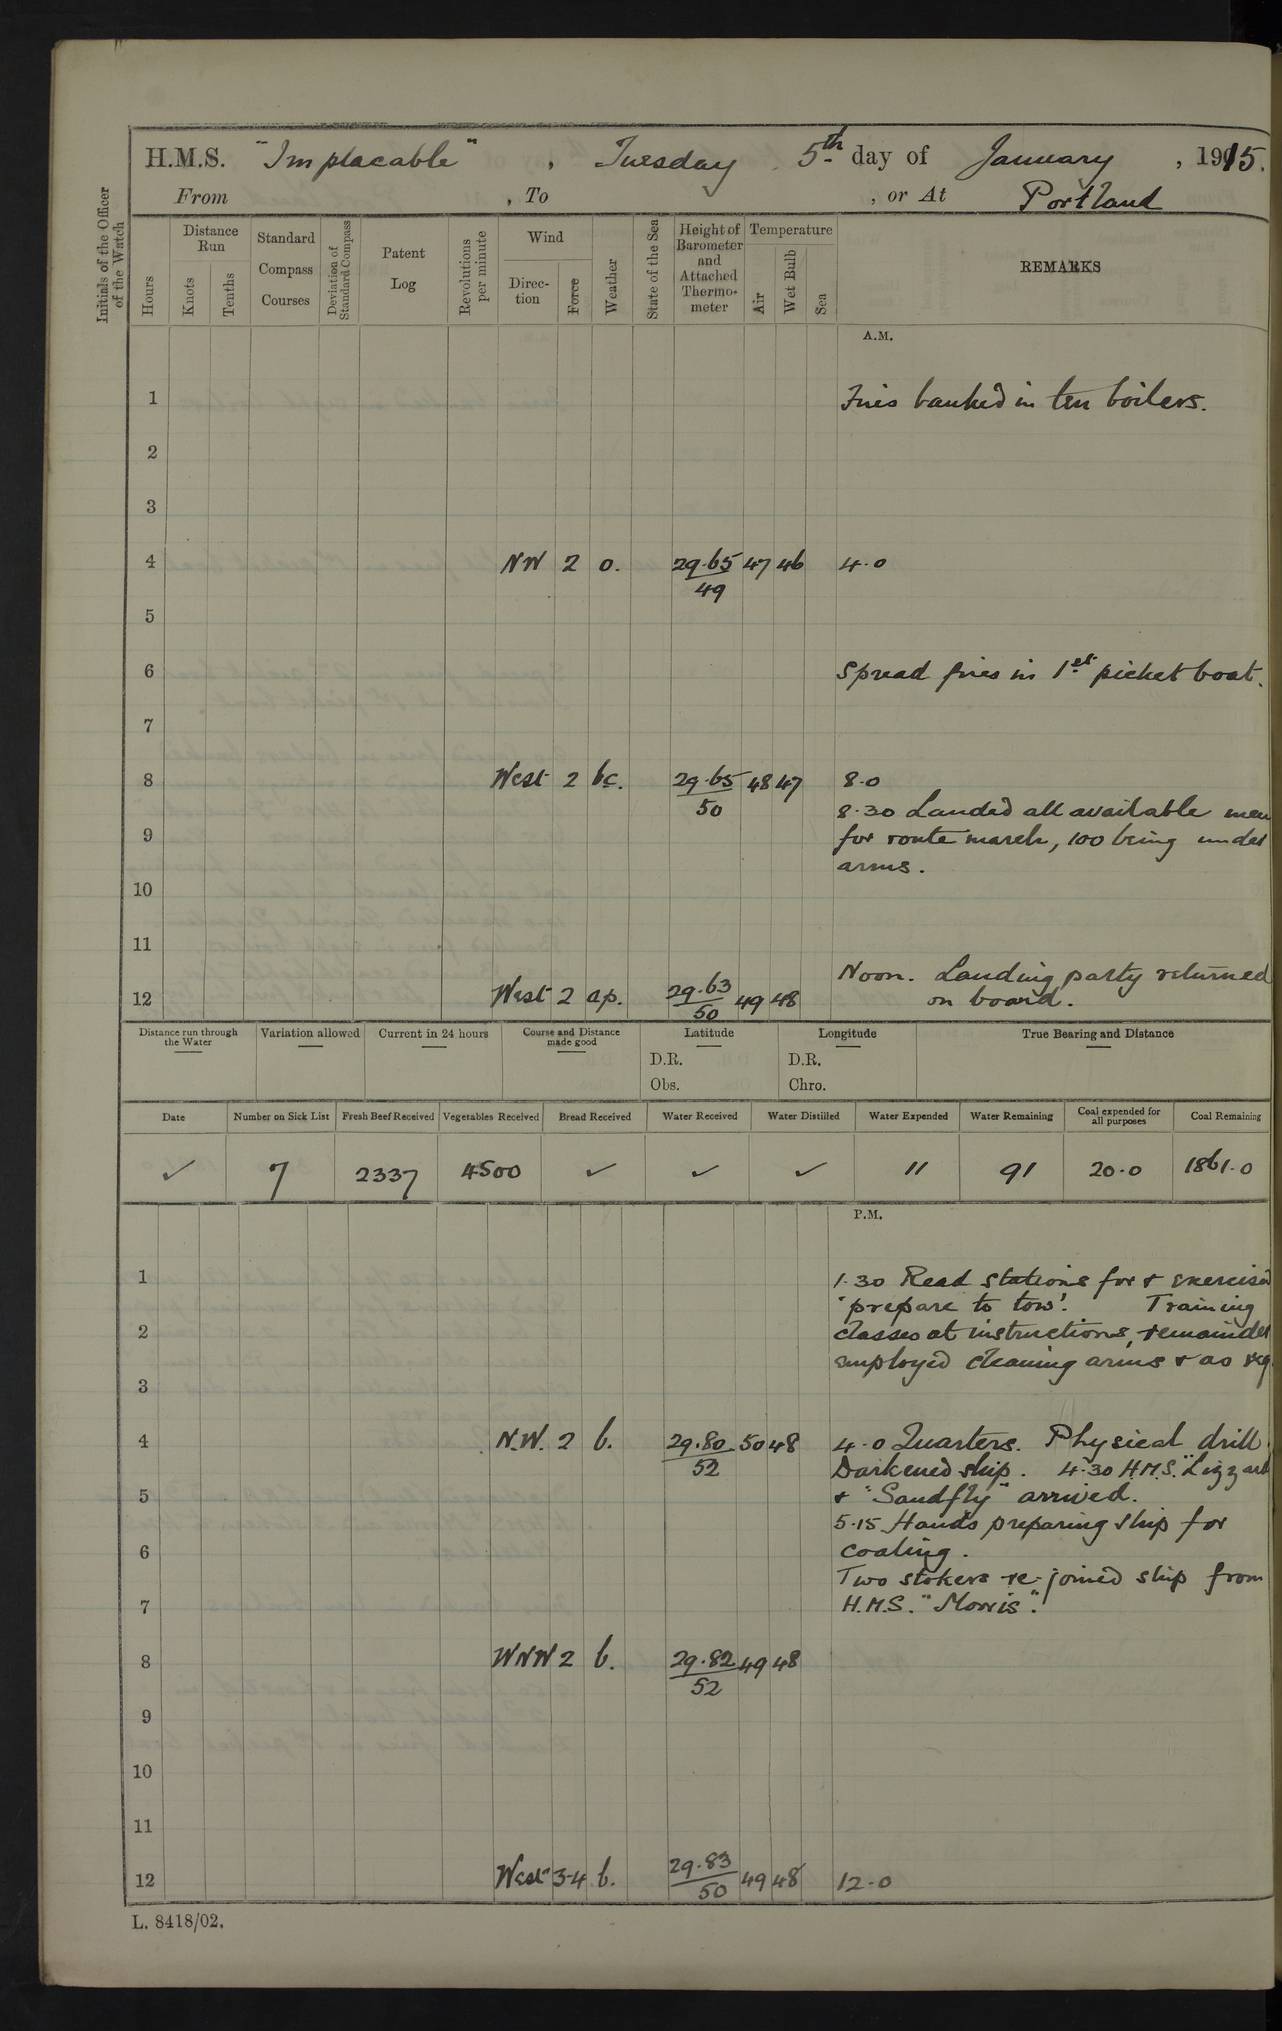 H.M.S. "Implacable", Tuesday 5th day of January, 1915.
From , To , or At Portland
Initials of the Officer of the Watch
Hours
Distance Run
Knots
Tenths
Standard Compass Courses
Deviation of Standard Compass
Patent Log
Revolutions per minute
Wind
Direction
Force
Weather
State of the Sea
Height of Barometer and Attached Thermometer
Temperature
Air
Wet Bulb
Sea
REMARKS
A.M.
1 Fires banked in ten boilers.
2
3
4 NW 2 o. 29.65 47 46 4.0
49
5
6 Spread fires in 1st picket boat.
7
8 West 2 bc. 29.65 48 47 8.0
50
8.30 Landed all available men
9 for route march, 100 being under
arms.
10
11
Noon. Landing party returned
12 West 2 op. 29.63 49 48 on board.
50
Distance run through the Water
Variation allowed
Current in 24 hours
Course and Distance made good
Latitude
D.R.
Obs.
Longitude
D.R.
Chro.
True Bearing and Distance
Date Number on Sick List Fresh Beef Received Vegetables Received Bread Received Water Received Water Distilled Water Expended Water Remaining Coal expended for all purposes Coal Remaining
✓ 7 2337 4500 ✓ ✓ ✓ 11 91 20.0 1861.0
P.M.
1 1.30 Read stations for & exercised
'prepare to tow'. Training
2 classes at instructions, remainder
employed cleaning arms & as req
3
4 N.W. 2 b. 29.80 50 48 4.0 Quarters. Physical drill.
52 Darkened ship. 4.30 H.M.S. "Lizzard
5 & "Sandfly" arrived.
5.15 Hands preparing ship for
6 coaling.
Two stokers re-joined ship from
7 H.M.S. "Morris".
8 WNW 2 b. 29.82 49 48
52
9
10
11
12 West 3-4 b. 29.83 49 48 12.0
50
L. 8418/02.